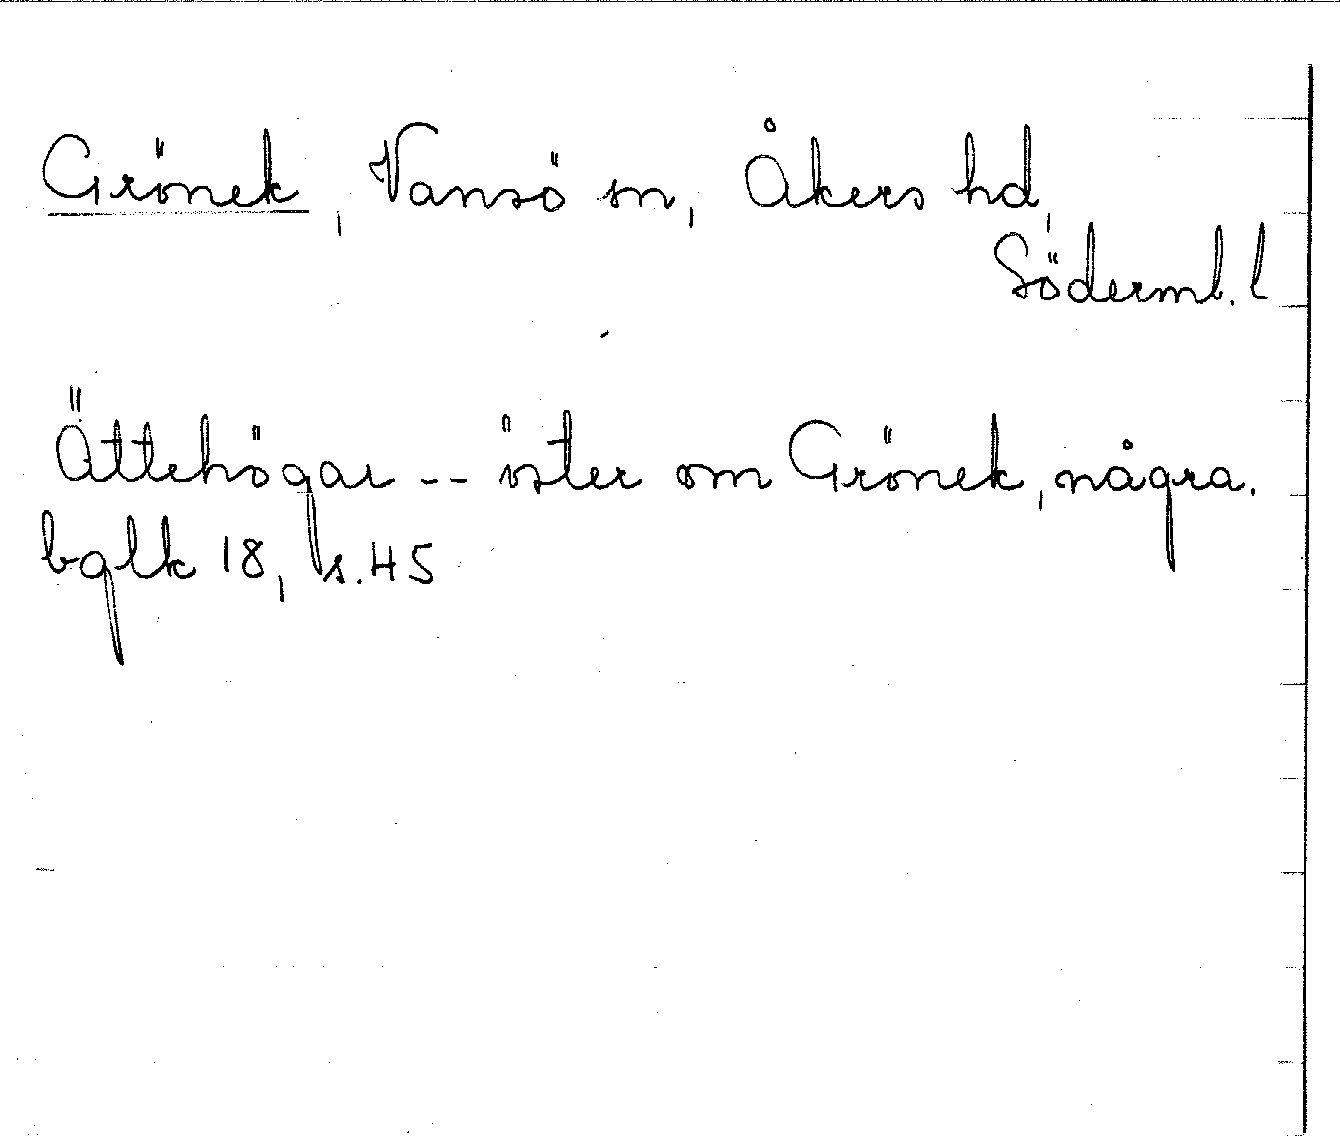 Grönek, Vansö sn, Åkers hd,
Söderml. l
Ättehögar -- öster om Grönek, några.
bglk 18, s. 45